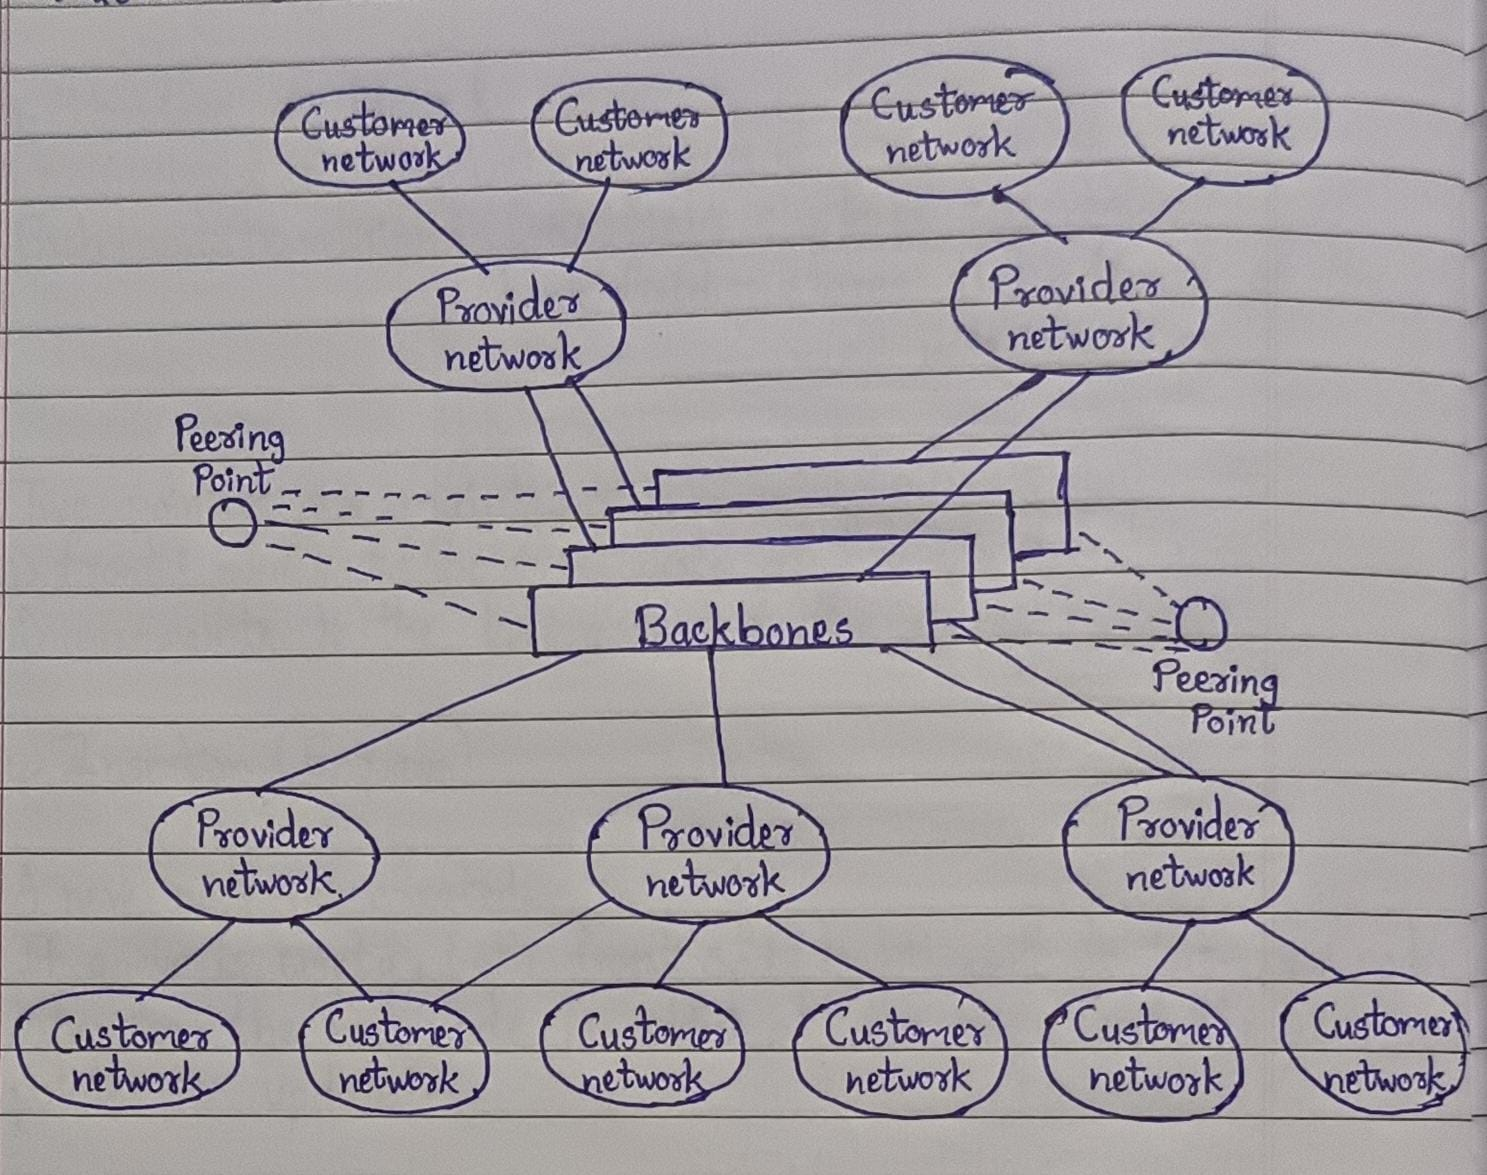 Customer
network
Customer
network
Customer
network
Customer
network
Provider
network
Provider
network
Peering
Point
Backbones
Peering
Point
Provider
network
Provider
network
Provider
network
Customer
network
Customer
network
Customer
network
Customer
network
Customer
network
Customer
network